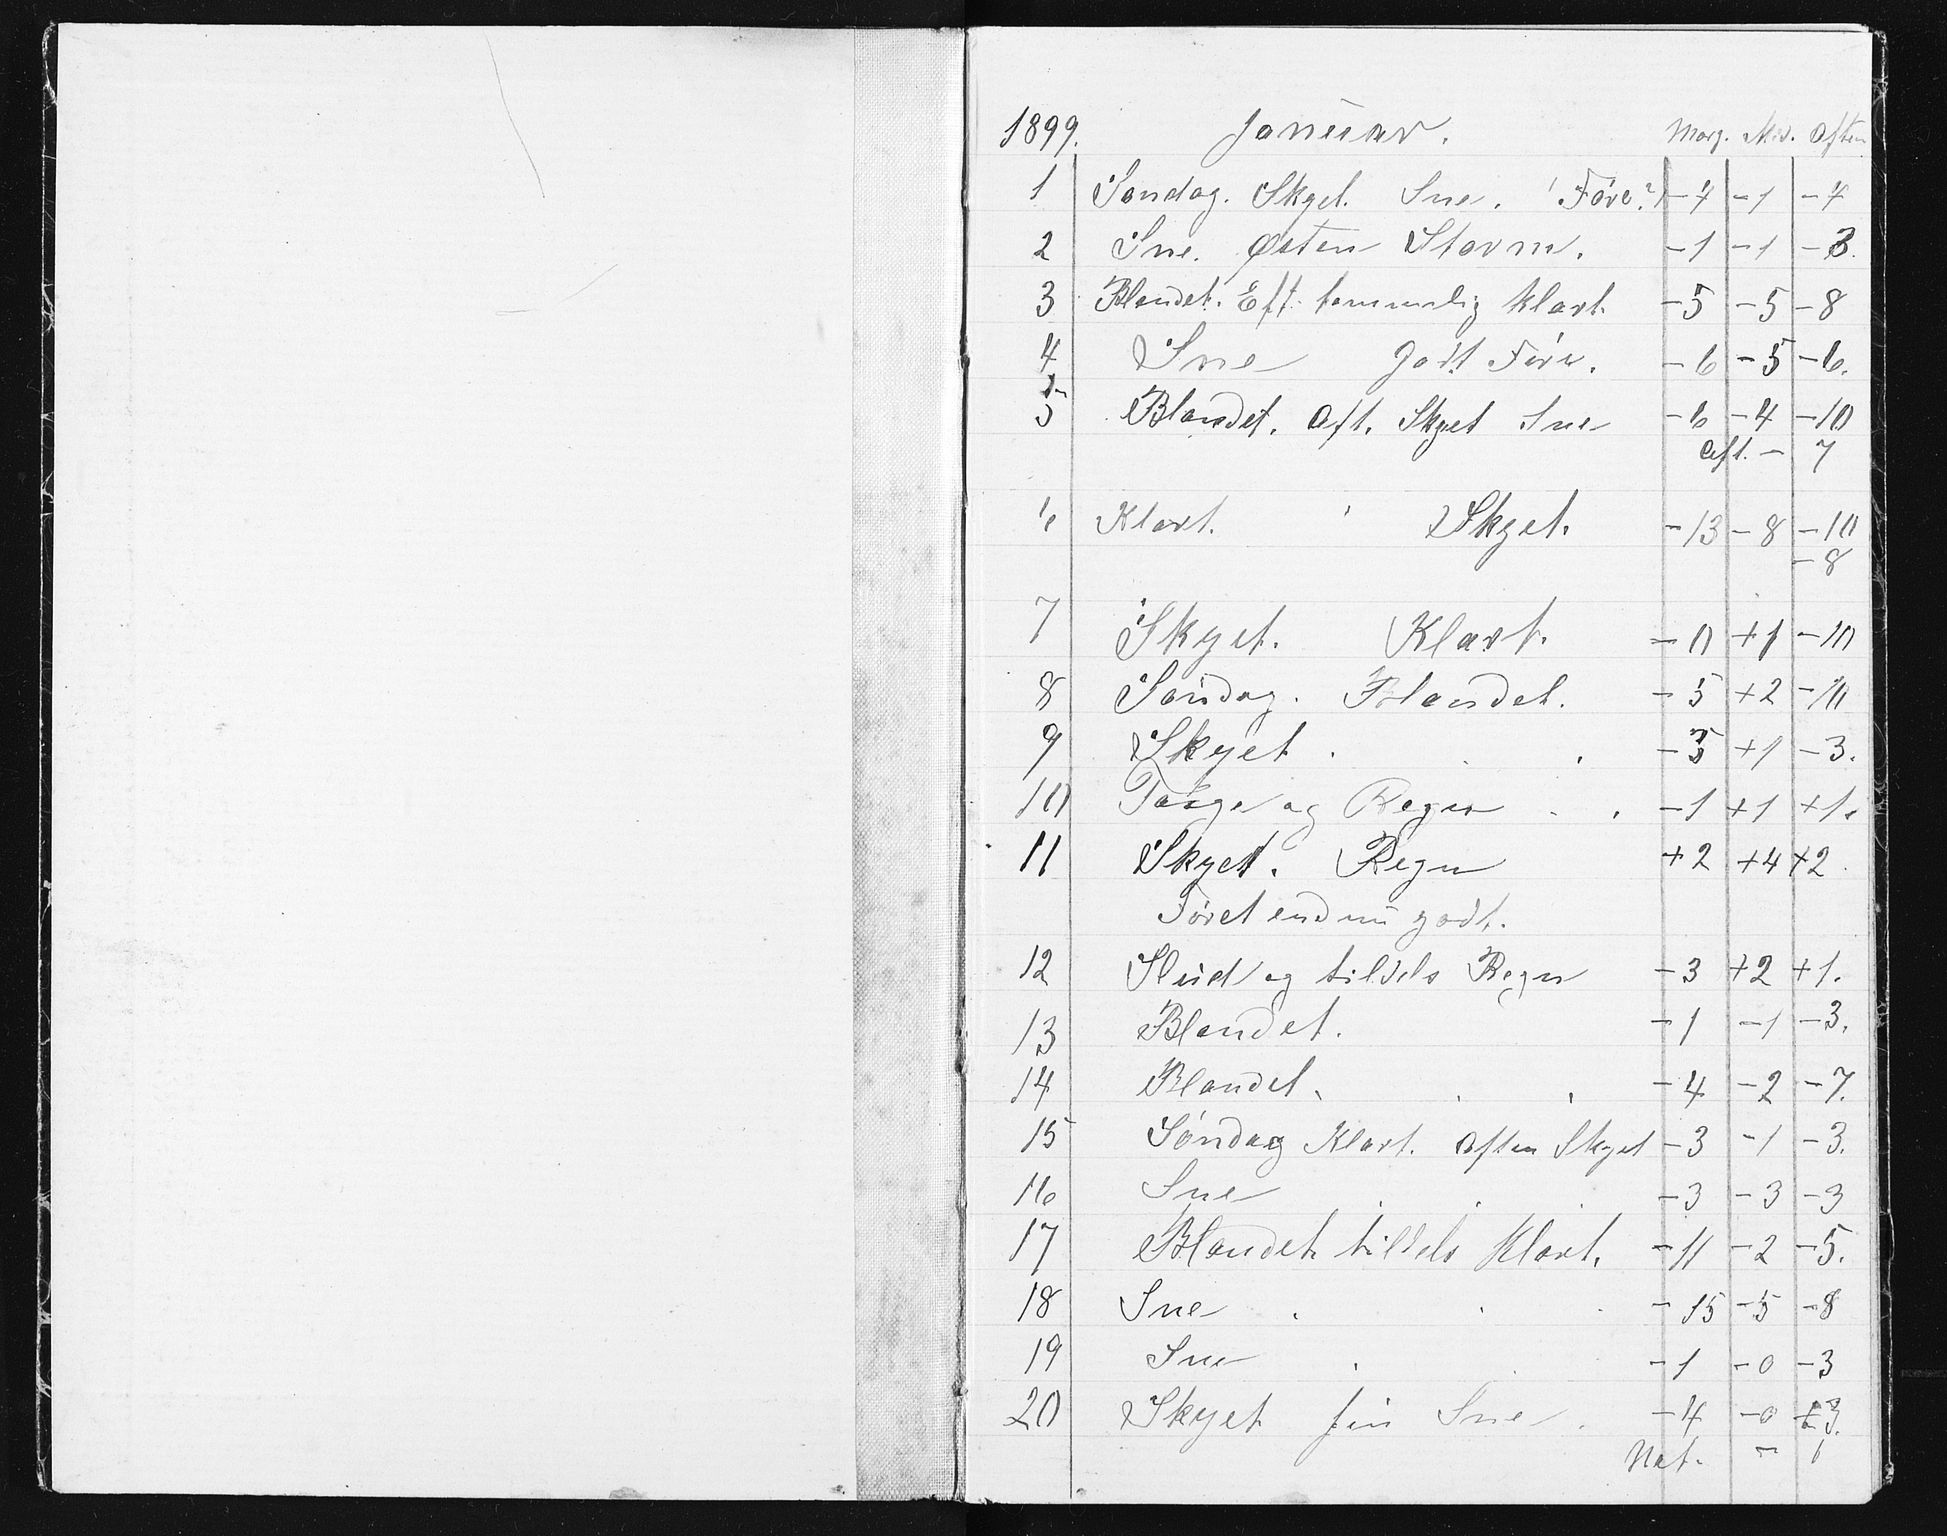 1899. Januar. Morg. Mid. Aften
1 Søndag. Skyet. Sne. (Føre?) -7 -1 -7
2 Sne. Østen Storm. -1 -1 -3.
3 Blandet. Eft. temmelig klart. -5 -5 -8
4 Sne Godt Føre. -6 -5 -6.
5 Blandet. Aft. Skyet Sne -6 -4 -10
Aft. - 7
6 Klart. Skyet. -13 -8 -10
-8
7 Skyet. Klart. -0 +1 -10
8 Søndag. Blandet. -5 +2 -10
9 Skyet. +1 -3.
10 Taage og Regn -1 +1 +1.
11 Skyet. Regn +2 +4 +2.
Føret endnu godt.
12 Slud og tildels Regn -3 +2 +1.
13 Blandet. -1 -1 -3.
14 Blandet. -4 -2 -7.
15 Søndag Klart. Aften Skyet -3 -1 -3.
16 Sne -3 -3 -3
17 Blandet tildels Klart. -11 -2 -5.
18 Sne -15 -5 -8
19 Sne -1 -0 -3
20 Skyet fin Sne. -4 -0
Nat. - 1